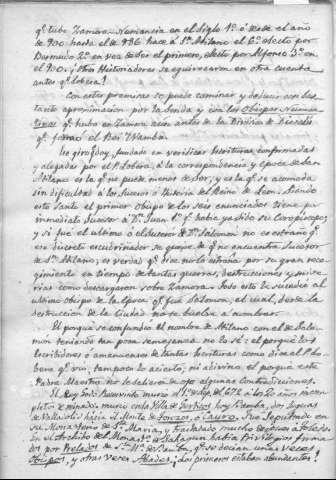 qe. tubo Zamora. Numancia en el Siglo 1º ó desde el año
de 900. hasta el de 986 hace á Sn. Atilano el 6º electo por
Bermudo 2º en vez de ser el primero, electo por Alfonso 3º en
el 900. y otros Historiadores se equivocaron en otra cuenta
antes qe. lo leia!
Con estas premisas se puede caminar y deducir con bas
tante aproximacion por la senda y con los Obispos Numan
tinos qe. hubo en Zamora acia antes de la Division de Diocesis
qe. formó el Rei Wamba.
fundado en verificar Escrituras confirmadas
y alegadas por el P. Lobera, á la correspondencia y epoca de San
Atilano es la qe. no puede menos de ser, y es la qe. se acomoda
sin dificultad á los Sucesos é Historia del Reino de Leon: Siendo
este Santo el primer Obispo de los seis enunciados viene por
inmediato Sucesor á Dn. Juan 1º qe. habia ya sido su Coropiscopo;
y si fue el ultimo ó el Sucesor de Dn. Salomon no es estraño qe.
ese discreto escudriñador se queje de qe. no encuentra Sucesor
de Sn. Atilano; es verdad qe. dice no lo estraña por su gran reco
gimiento en tiempo de tantas guerras, destrucciones y mise
rias como descargaron sobre Zamora. Todo esto le sucedió al
ultimo obispo de la Epoca qe. fue Salomon, el cual, desde la
destruccion de la Ciudad no se buelve á nombrar.
El porqué se confundia el nombre de Atilano con el de Salo
mon teniendo tan poca semejanza no lo sé: el porqué los
Escribidores ó amanuenses de tantas Escrituras como dice el P. Lo
bera qe. vió, tampoco lo acierto, ni adivino el porque este
Padre Maestro no se detiene á ojo algunas contradicciones.
El Rey Godo Recesvinto murio el 1º de Sepe. de 672 á los 20 años incom
pletos de reinado murio en la Villa de Gerticos hoy Bamba, dos leguas
de Valladolid hacia el frente de fonzos, á Lauro. fue Sepultado en
su Monasterio de Sta. Maria, y trasladado mucho despues á Toledo.
En el Archibo del Monastº de Sahagun habia Privilegios firma
dos por Prelados de Sta. Mª de Bamba, qe. se decian unas veces
Obispos, y otras veces Abades; los primeros estaban abundantes!